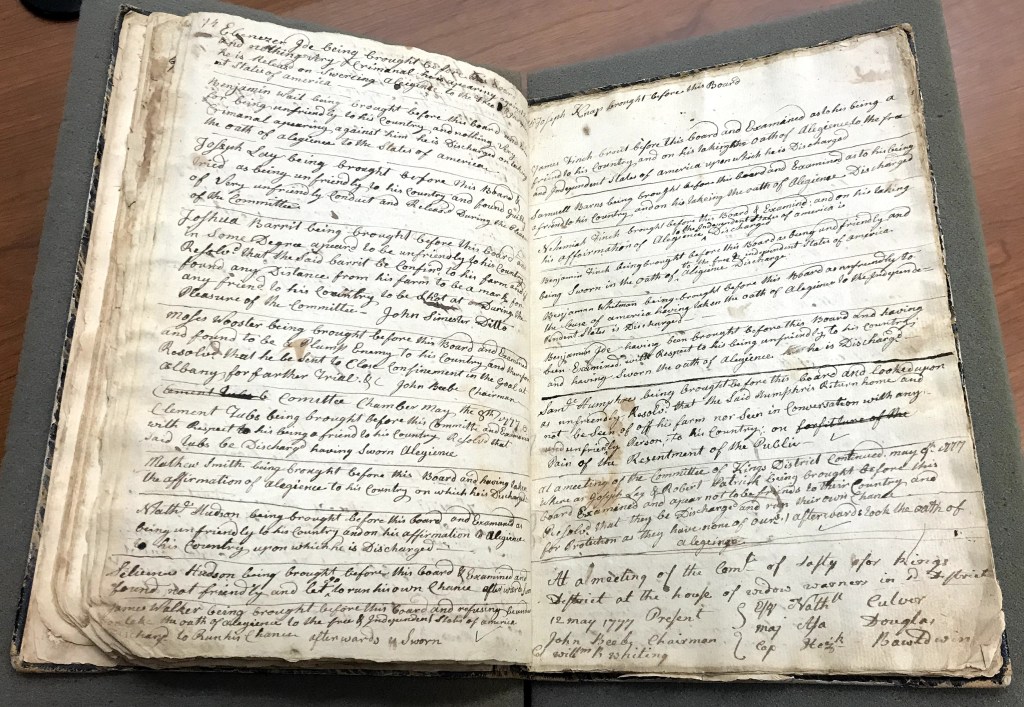 14 Ebenezer Joe being brought before
and nothing Very Criminal appearing
he is Releas on Swereing Alegience to the
States of america
Benjamin Wait being brought before this board
for being unfriendly to his Country and nothing Very
Crimanal apearing against him he is Discharged on taking
the oath of alegience to the States of america
Joseph Lay being brought before this Board &
tried as being unfriendly to his Country and found Guilty
of Very unfriendly Conduct and Releasd During the pleasure
of the Committee
Joshua Barrit being brought before this Board and
in Some Degree apeard to be unfriendly to his Country
Resolvd that the Said barrit be Confind to his farm and if
found any Distance from his farm to be a mark for
any friend to his Country to be Shot at During the
Pleasure of the Committe John Simester Ditto
Moses Wooster being brought before this Board and Examined
and found to be a Enemy to his Country and therefore
Resolvd that he be sent to Close Confinement in the Goal at
Albany for farther Trial &c John Beebe Chairman
Comittee Chamber May the 8th 1777
Clement Tubs being brought before this Committe and Examined
with Respect to his being a friend to his Country Resolvd that
said Tubs be Dischargd having Sworn Alegience
Mathew Smith being brought before this Board and having taken
the affirmation of alegience to his Country on which he is Discharged
Nathl Hudson being brought before this board and Examined as
being unfriendly to his Country and on his affirmation of Alegience
to his Country upon which he is Discharged
Hudson being brought before this Board & Examined and
found not friendly and Let to run his own Chance afterwards
James Walker being brought before this Board and refusing
to take the oath of Alegience to the free & Independent States of america
to Run his Chance afterwards is Sworn
Joseph Knap brought before this Board
James Finch brout before this board and Examined as to his being a
friend to his Country and on his taking the oath of Alegience to the free
and Independent States of america upon which he is Discharged
Samuell Barns being brought before this board and Examined as to his being
a friend to his Country and on his takeing the oath of Alegience Discharged
Nehemiah Finch brought before the Board & Examind and on his taking
his affairmation of Alegience to the Independent States of america is Discharged
Benjamin Finch being brought before this Board as being unfriendly and
being Sworn in the oath of Alegience the free & independent States of america Discharge
Benjaman Whitman being brought before this Board as unfriendly to
the Cause of america having taken the oath of Alegience to the Independe-
Pendent States is Discharged
Benjamin Joe having been brought before this Board and having
been Examined with Respect to his being unfriendly to his Country
and having Sworn the oath of Alegience he is Discharge
Sandr Humphres being brought before this board and looked upon
as unfreindly Resolvd that the Said Humphris Return home and
not be Seen of off his farm nor Seen in Conversation with any
unfriendly Person to his Country on forfiture of the
Pain of the Resentment of the Public
at a meeting of the Committee of Kings District Continued may 9th 1777
where as Joseph Ley & Robert Patrick being brought before this
board Examined and apear not to be friends to their Country and
Resolvd that they be Discharge and run their own Chance
for Protetion as they have none of ours / afterwards took the oath of
alegience
At a meeting of the Comt of Safty for Kings
District at the house of widow warners in sd District
12 may 1777 Present Nathll Culver
John Beeby Chairman may Asa Douglas
Willm B Whiting Cap Bawldwin